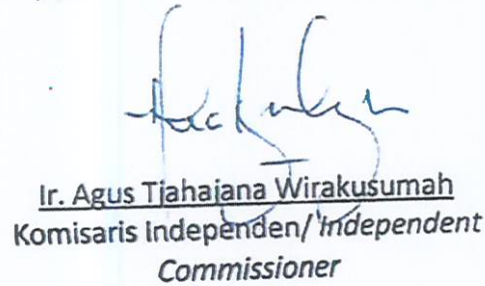 Ir. Agus Tjahajana Wirakusumah
Komisaris Independen/ Independent
Commissioner